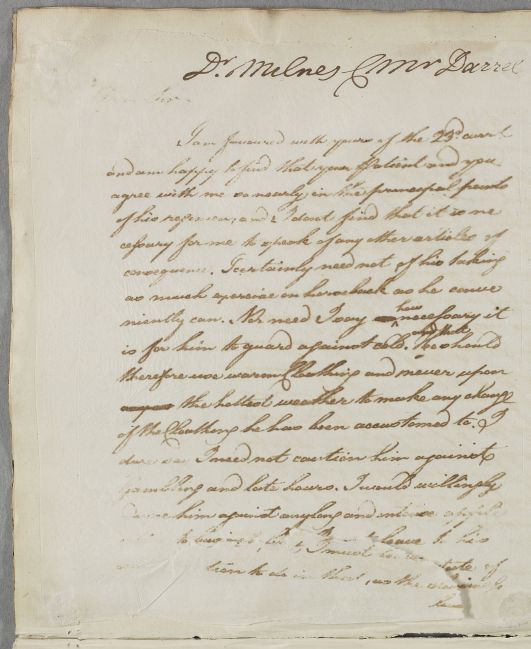 Dr. Milnes & Mr Darrel
Dear Sir.
I am favoured with yours of the 23d. curr.t
and am happy to find that your Patient and you
agree with me so nearly in the principal points
of his regimen, and I dont find that it is ne
cessary for me to speak of any other articles of
consequence. I certainly need not of his taking
as much exercise on horseback as he conve
niently can. Nor need I say how necessary it
is for him to guard against cold, and that he should
therefore use warm Cloathing and never upon
the hottest weather to make any change
of the Cloathing he has been accustomed to. I
dare say I need not caution him against
Gambling and late hours. I would willingly
him against any long and intense
to business, but I must leave to his
of
to do in that, as the